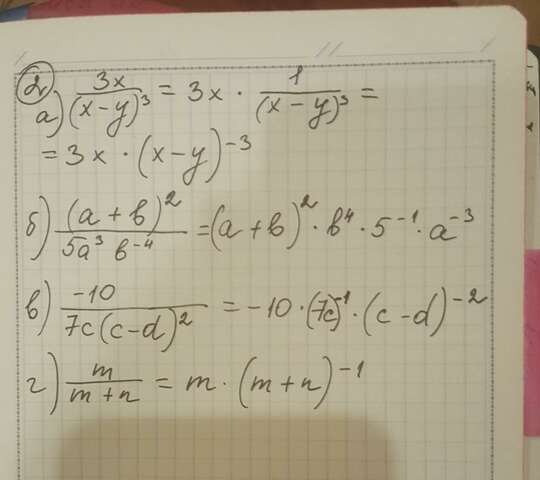 2
а) 3x/(x-y)³ = 3x · 1/(x-y)³ =
= 3x · (x-y)⁻³
б) (a+b)²/5a³ b⁻⁴ = (a+b)² · b⁴ · 5⁻¹ · a⁻³
в) -10/7c(c-d)² = -10 · (7c)⁻¹ · (c-d)⁻²
г) m/m+n = m · (m+n)⁻¹